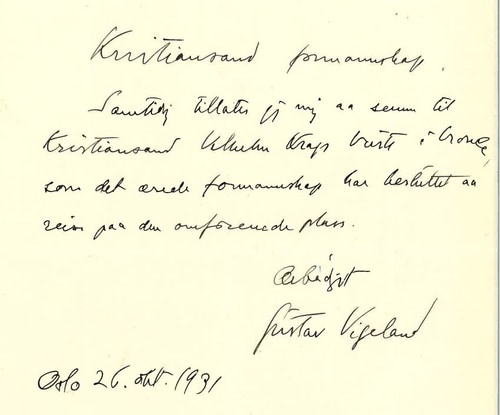 Kristiansand formannskap.
Samtidig tillater jeg mig aa senne til
Kristiansand Vilhelm Krags byste i bronce,
som det ærede formannskap har besluttet aa
reise paa den omforenede plass.
Ærbødigst
Gustav Vigeland
Oslo 26. okt. 1931